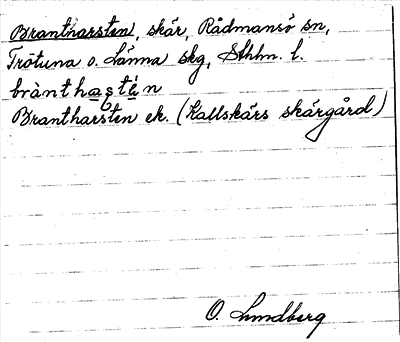 Brantharsten, skär, Rådmansö sn,
Frötuna o. Länna skg, Sthlm. l.
brànthaʂtén
Brantharsten ek. (Kallskärs skärgård)
O. Lundberg